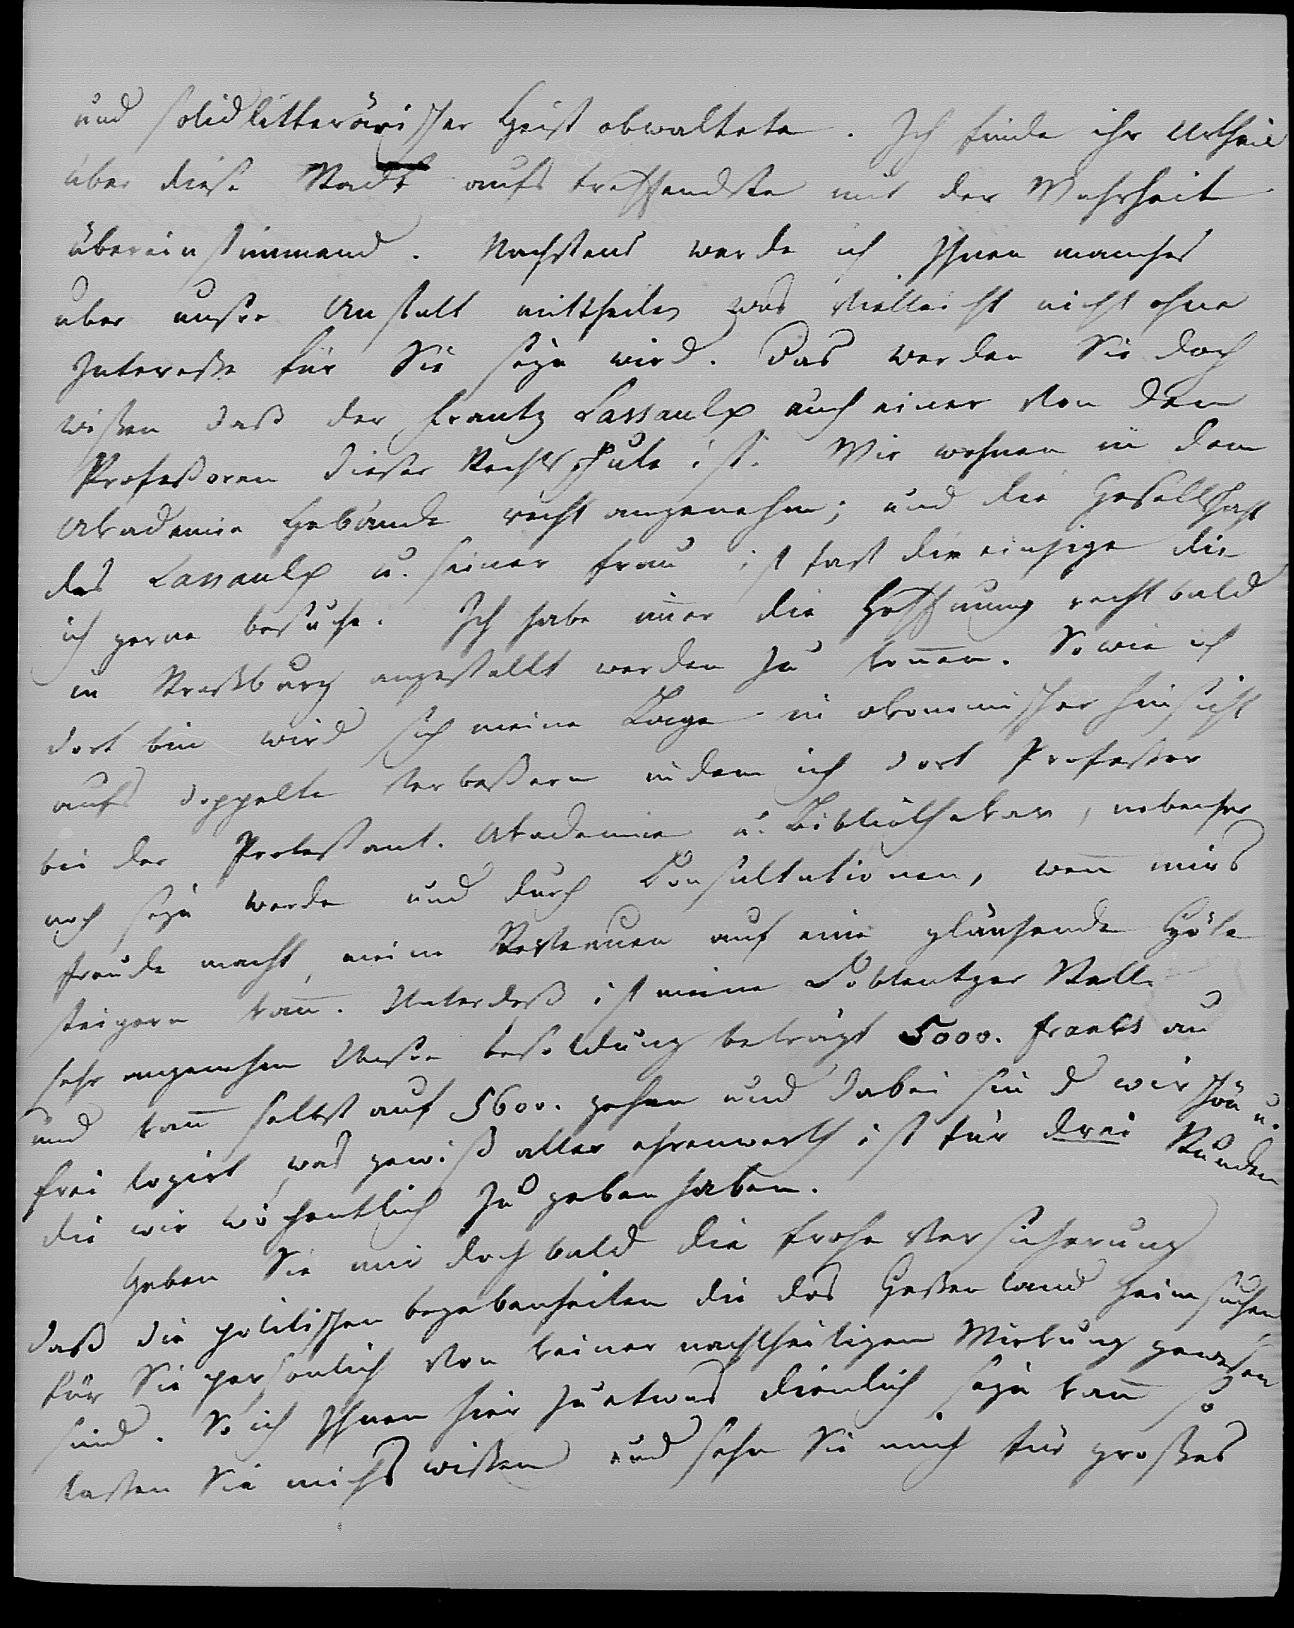 und solid litterärischer Geist obwaltete. Ich finde ihr Urtheil
über diese Stadt aufs treffendste mit der Wahrheit
übereinstimmend. Nachstens werde ich Ihnen manches
uber unsre Anstalt mittheilen was vielleicht nicht ohne
Interesse für Sie seyn wird. Das werden Sie doch
wißen daß der Frantz Lassaulx auch einer von den
Profeßoren dieser Rechtsschule ist. Wir wohnen in dem
Akademie Gebäude recht angenehm; und die Gesellschaft
des Lassaulx u. seiner Frau ist fast die einzige die
ich gerne besuche. Ich habe im̄er die Hoffnung recht bald
in Straßburg angestellt werden zu kön̄en. So wie ich
dort bin wird sich meine Lage in okonomischer Hinsicht
aufs doppelte verbeßern indem ich dort Profeßor
bei der Protestant. Akademie u. Bibliothekar, nebenher
noch seyn werde und durch Consultationen, wen̄ mirs
Freude macht, meine Revenuen auf eine glänzende Höhe
steigern kan̄. Unterdeß ist meine Coblentzer Stelle
sehr angenehm Unsre besoldung beträgt 5000. Franks an
und kan̄ selbst auf 5600. gehen und dabei sind wir schön u.
frei logirt, was gewiß aller ehrenwerth ist für drei Stunden
die wir wöchentlich zu geben haben.
Geben Sie mir doch bald die frohe Versicherung
daß die politischen begebenheiten die das Heßenland heimsuchen,
für Sie persönlich von keiner nachtheiligen Wirkung gewesen
sind. So ich Ihnen hier zu etwas dienlich seyn kan̄ so
laßen Sie michs wißen und sehn Sie mich für großes